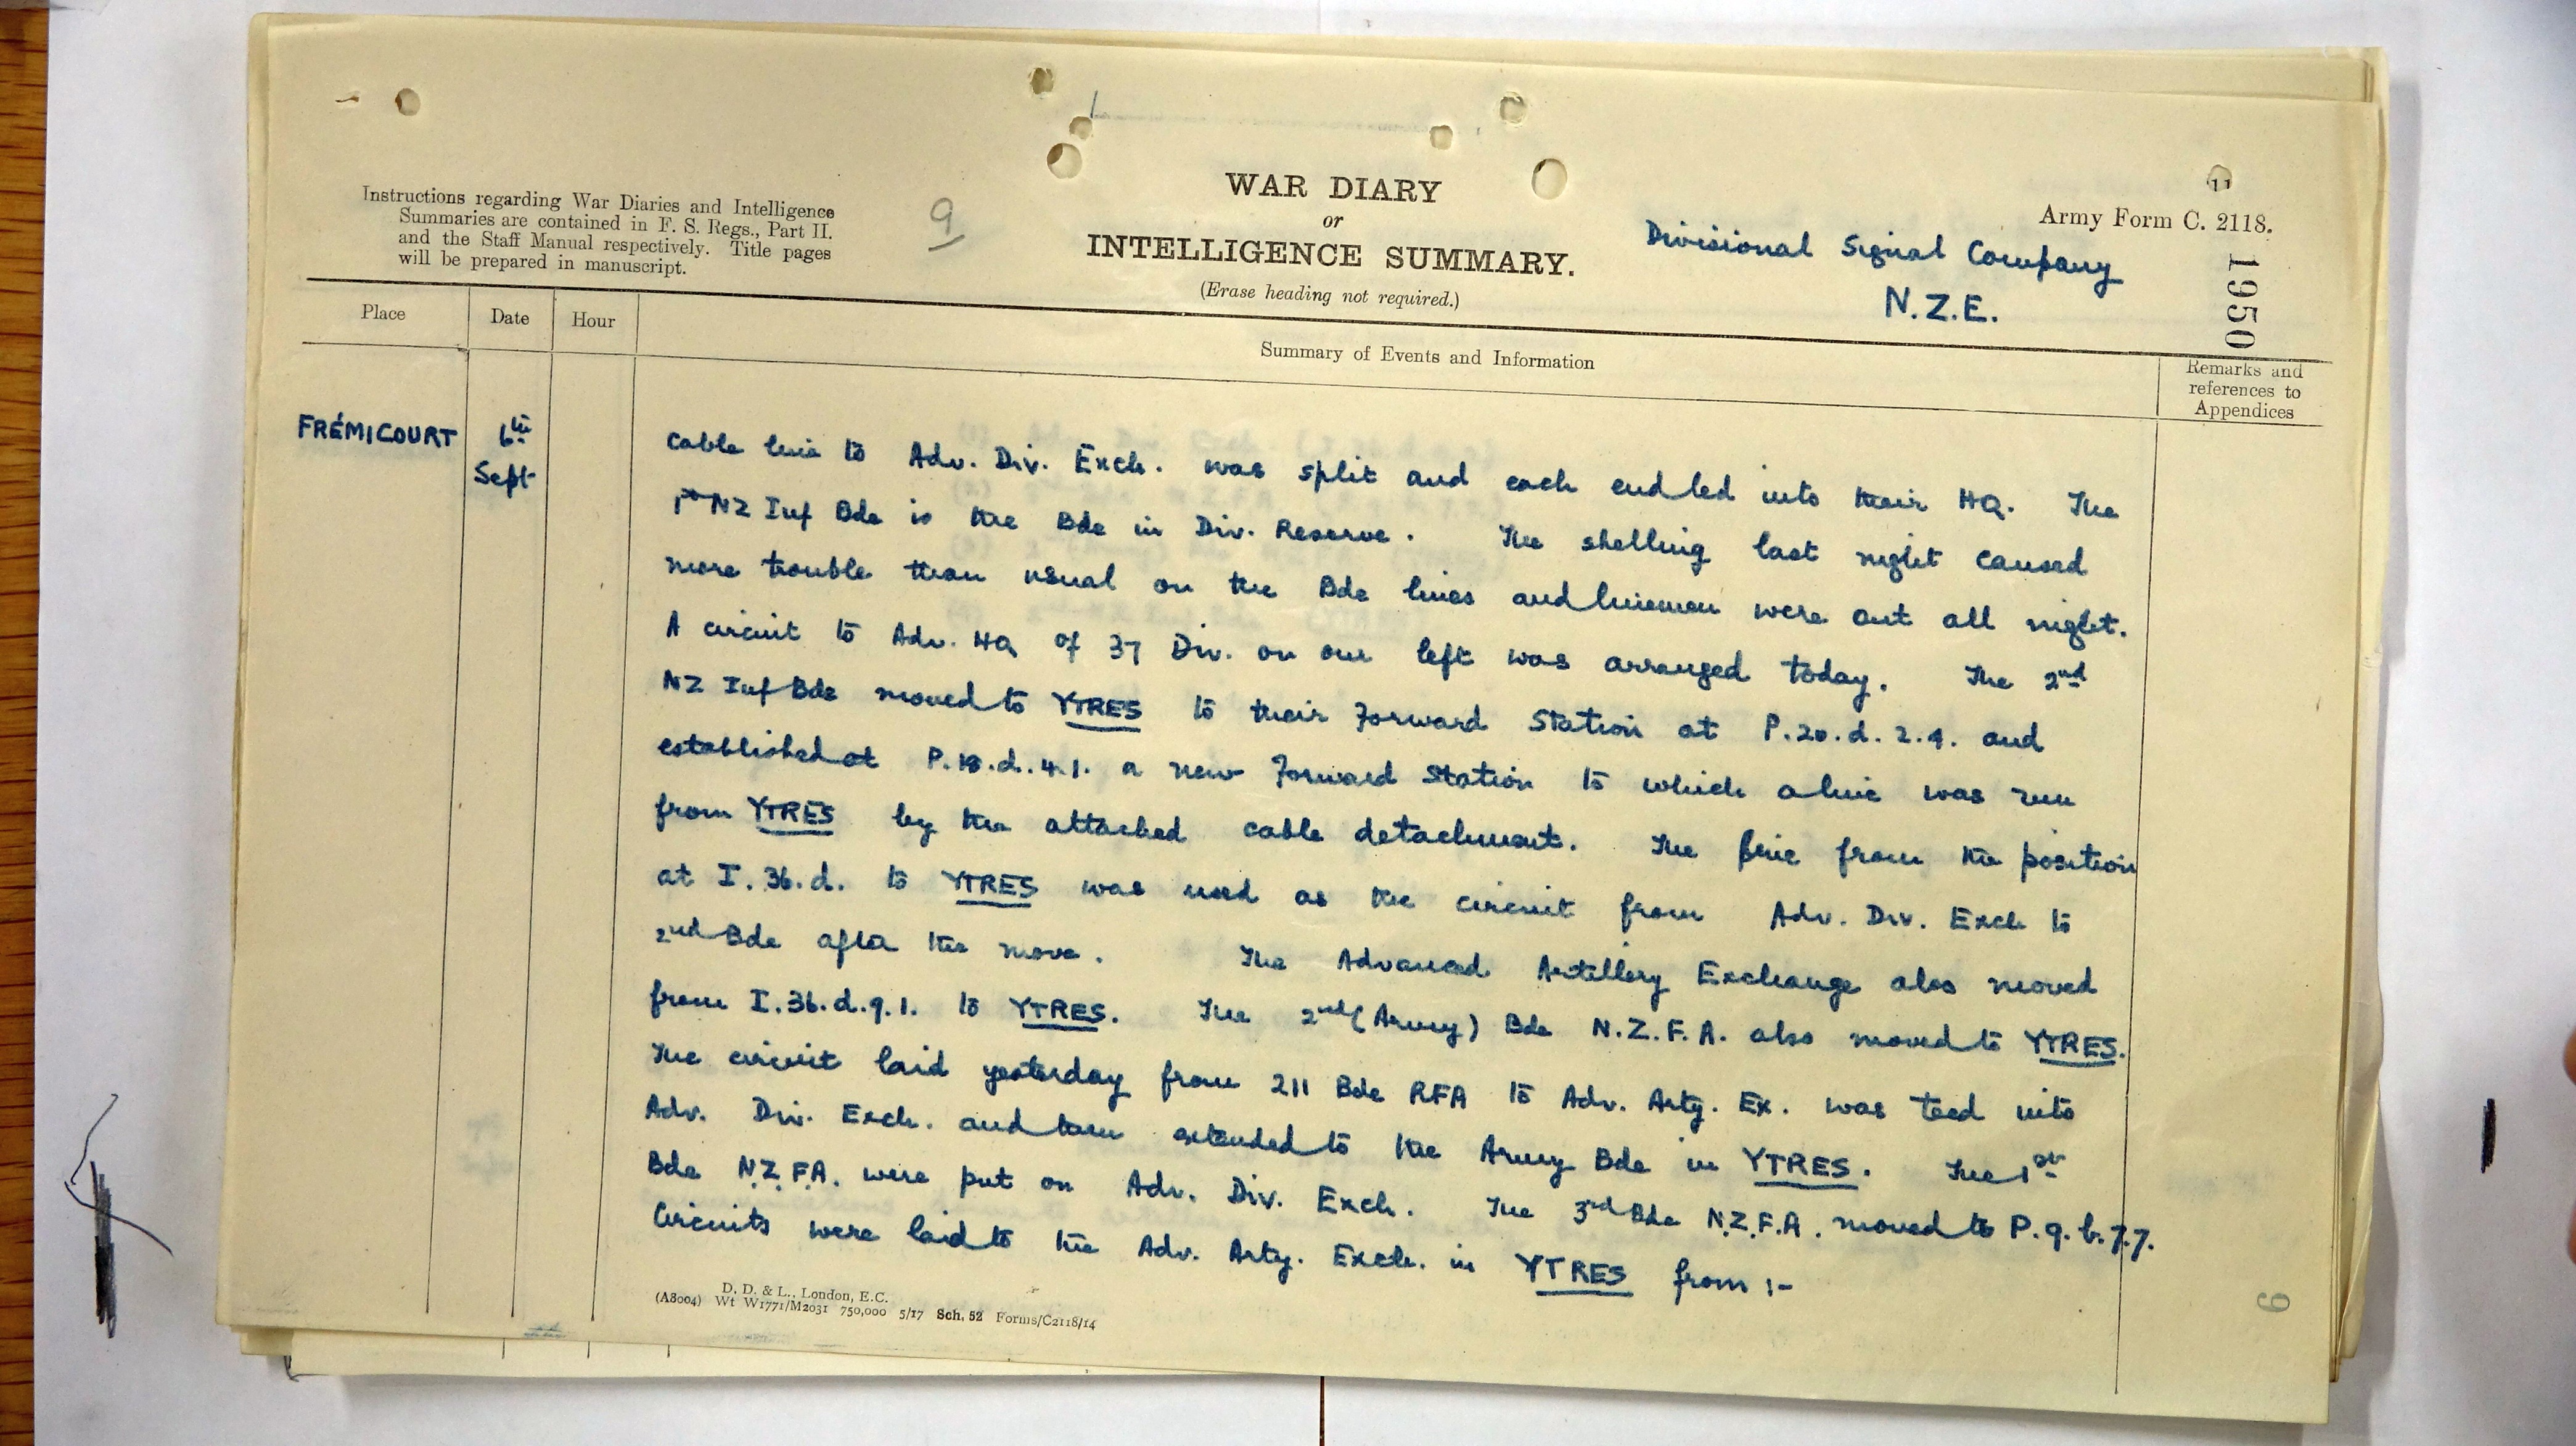 Instructions regarding War Diaries and Intelligence
Summaries are contained in F. S. Regs., Part II.
and the Staff Manual respectively. Title pages
will be prepared in manuscript.
9
WAR DIARY
or
INTELLIGENCE SUMMARY.
(Erase heading not required.)
Army Form C. 2118.
Divisional Signal Company
N.Z.E.
11
1950
Place
Date
Hour
Summary of Events and Information
Remarks and
references to
Appendices
FRÉMICOURT
6th
Sept
cable line to Adv. Div. Exch. was split and each end led into their HQ. The
1st NZ Inf Bde is the Bde in Div. Reserve. The shelling last night caused
more trouble than usual on the Bde lines and linemen were out all night.
A circuit to Adv. HQ of 37 Div. on our left was arranged today. The 2nd
NZ Inf Bde moved to YTRES to their Forward Station at P.20.d.2.9. and
established at P.18.d.4.1. a new Forward Station to which a line was run
from YTRES by the attached cable detachment. The line from the position
at I.36.d. to YTRES was used as the circuit from Adv. Div. Exch to
2nd Bde after the move. The Advanced Artillery Exchange also moved
from I.36.d.9.1. to YTRES. The 2nd (Army) Bde N.Z.F.A. also moved to YTRES.
The circuit laid yesterday from 211 Bde RFA to Adv. Arty. Ex. was teed into
Adv. Div. Exch. and then extended to the Army Bde in YTRES. The 1st
Bde N.Z.F.A. were put on Adv. Div. Exch. The 3rd Bde N.Z.F.A. moved to P.9.b.7.7.
Circuits were laid to the Adv. Arty. Exch. in YTRES from :-
D. D. & L., London, E.C.
(A8004) Wt W1771/M2031 750,000 5/17 Sch. 52 Forms/C2118/14
9